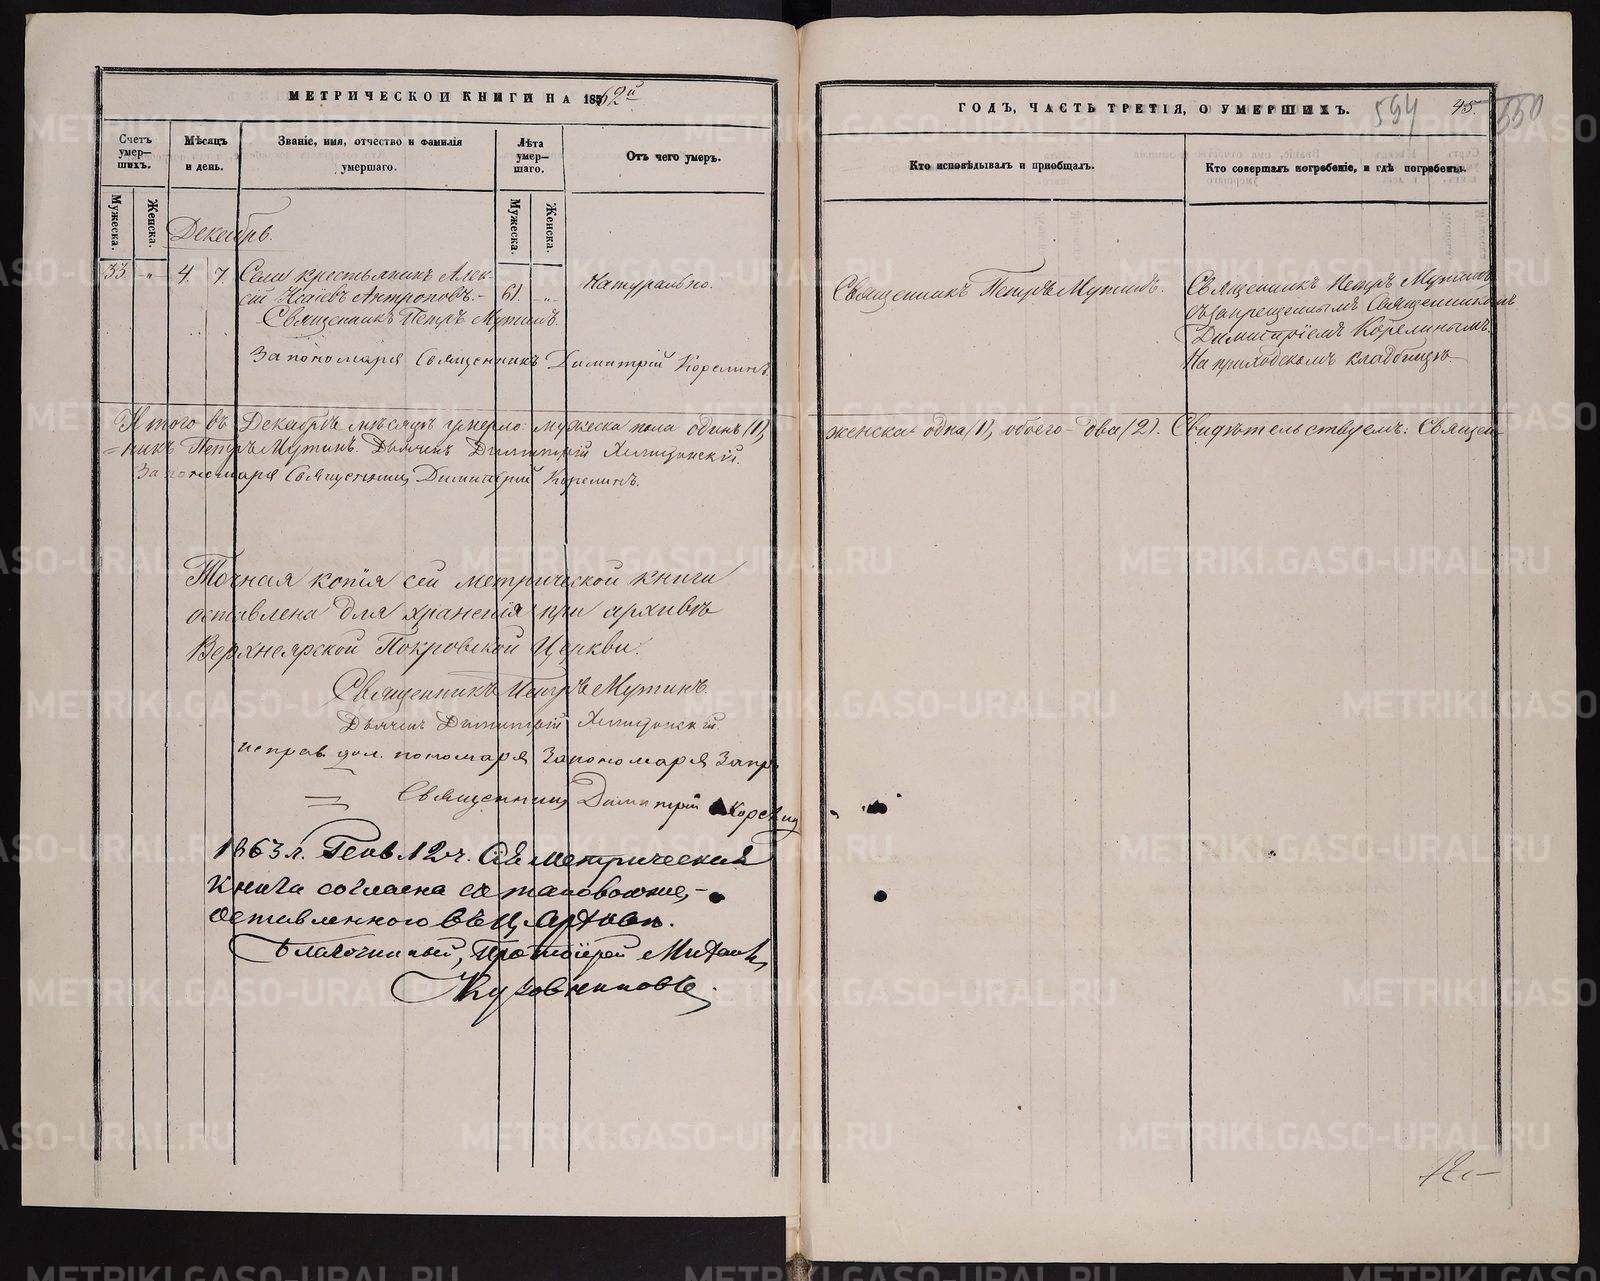 МЕТРИЧЕСКОЙ КНИГИ НА 1862й
Счетъ умер—шихъ.
Мужеска.
Женска.
Мѣсяцъ и день.
Званіе, имя, отчество и фамилія умершаго.
Лѣта умер—шаго.
Мужеска.
Женска.
Отъ чего умеръ.
Декабрь.
33 „ 4. 7. Села крестьянинъ Алек-
сій Исаіевъ Антроповъ.— 61. „ Натурально.
Священникъ Петръ Мутинъ.
За пономаря Священникъ Димитрій Корелинъ.
Итого въ Декабрѣ мѣсяцѣ умерло: мужеска пола одинъ (1),
=никъ Петръ Мутинъ. Дьячекъ Димитрій
За пономаря Священникъ Димитрій Корелинъ.
Точная копія сей метрической книги
оставлена для храненія при архивѣ
Верхнеярской Покровской Церкви.
Священникъ Петръ Мутинъ.
Дьячекъ Димитрій
исправ. дол. пономаря За пономаря Запр.
Священникъ Димитрій Корелинъ
1863 г. Генв. 12 ч. Сія метрическая
книга согласна съ таковою же,
оставленною въ Ц. Архивѣ.
Благочинный, Протоіерей Михаилъ
ГОДЪ, ЧАСТЬ ТРЕТІЯ, О УМЕРШИХЪ.
594 45. 550
Кто исповѣдывалъ и пріобщалъ.
Кто совершалъ погребеніе, и гдѣ погребены.
Священникъ Петръ Мутинъ.
Священникъ Петръ Мутинъ
съ запрещеннымъ Священникомъ
Димитріемъ Корелинымъ.
На приходскомъ кладбищѣ.
женска одна (1), обоего два (2). Свидѣтельствуемъ: Священ-
METRIKI.GASO-URAL.RU